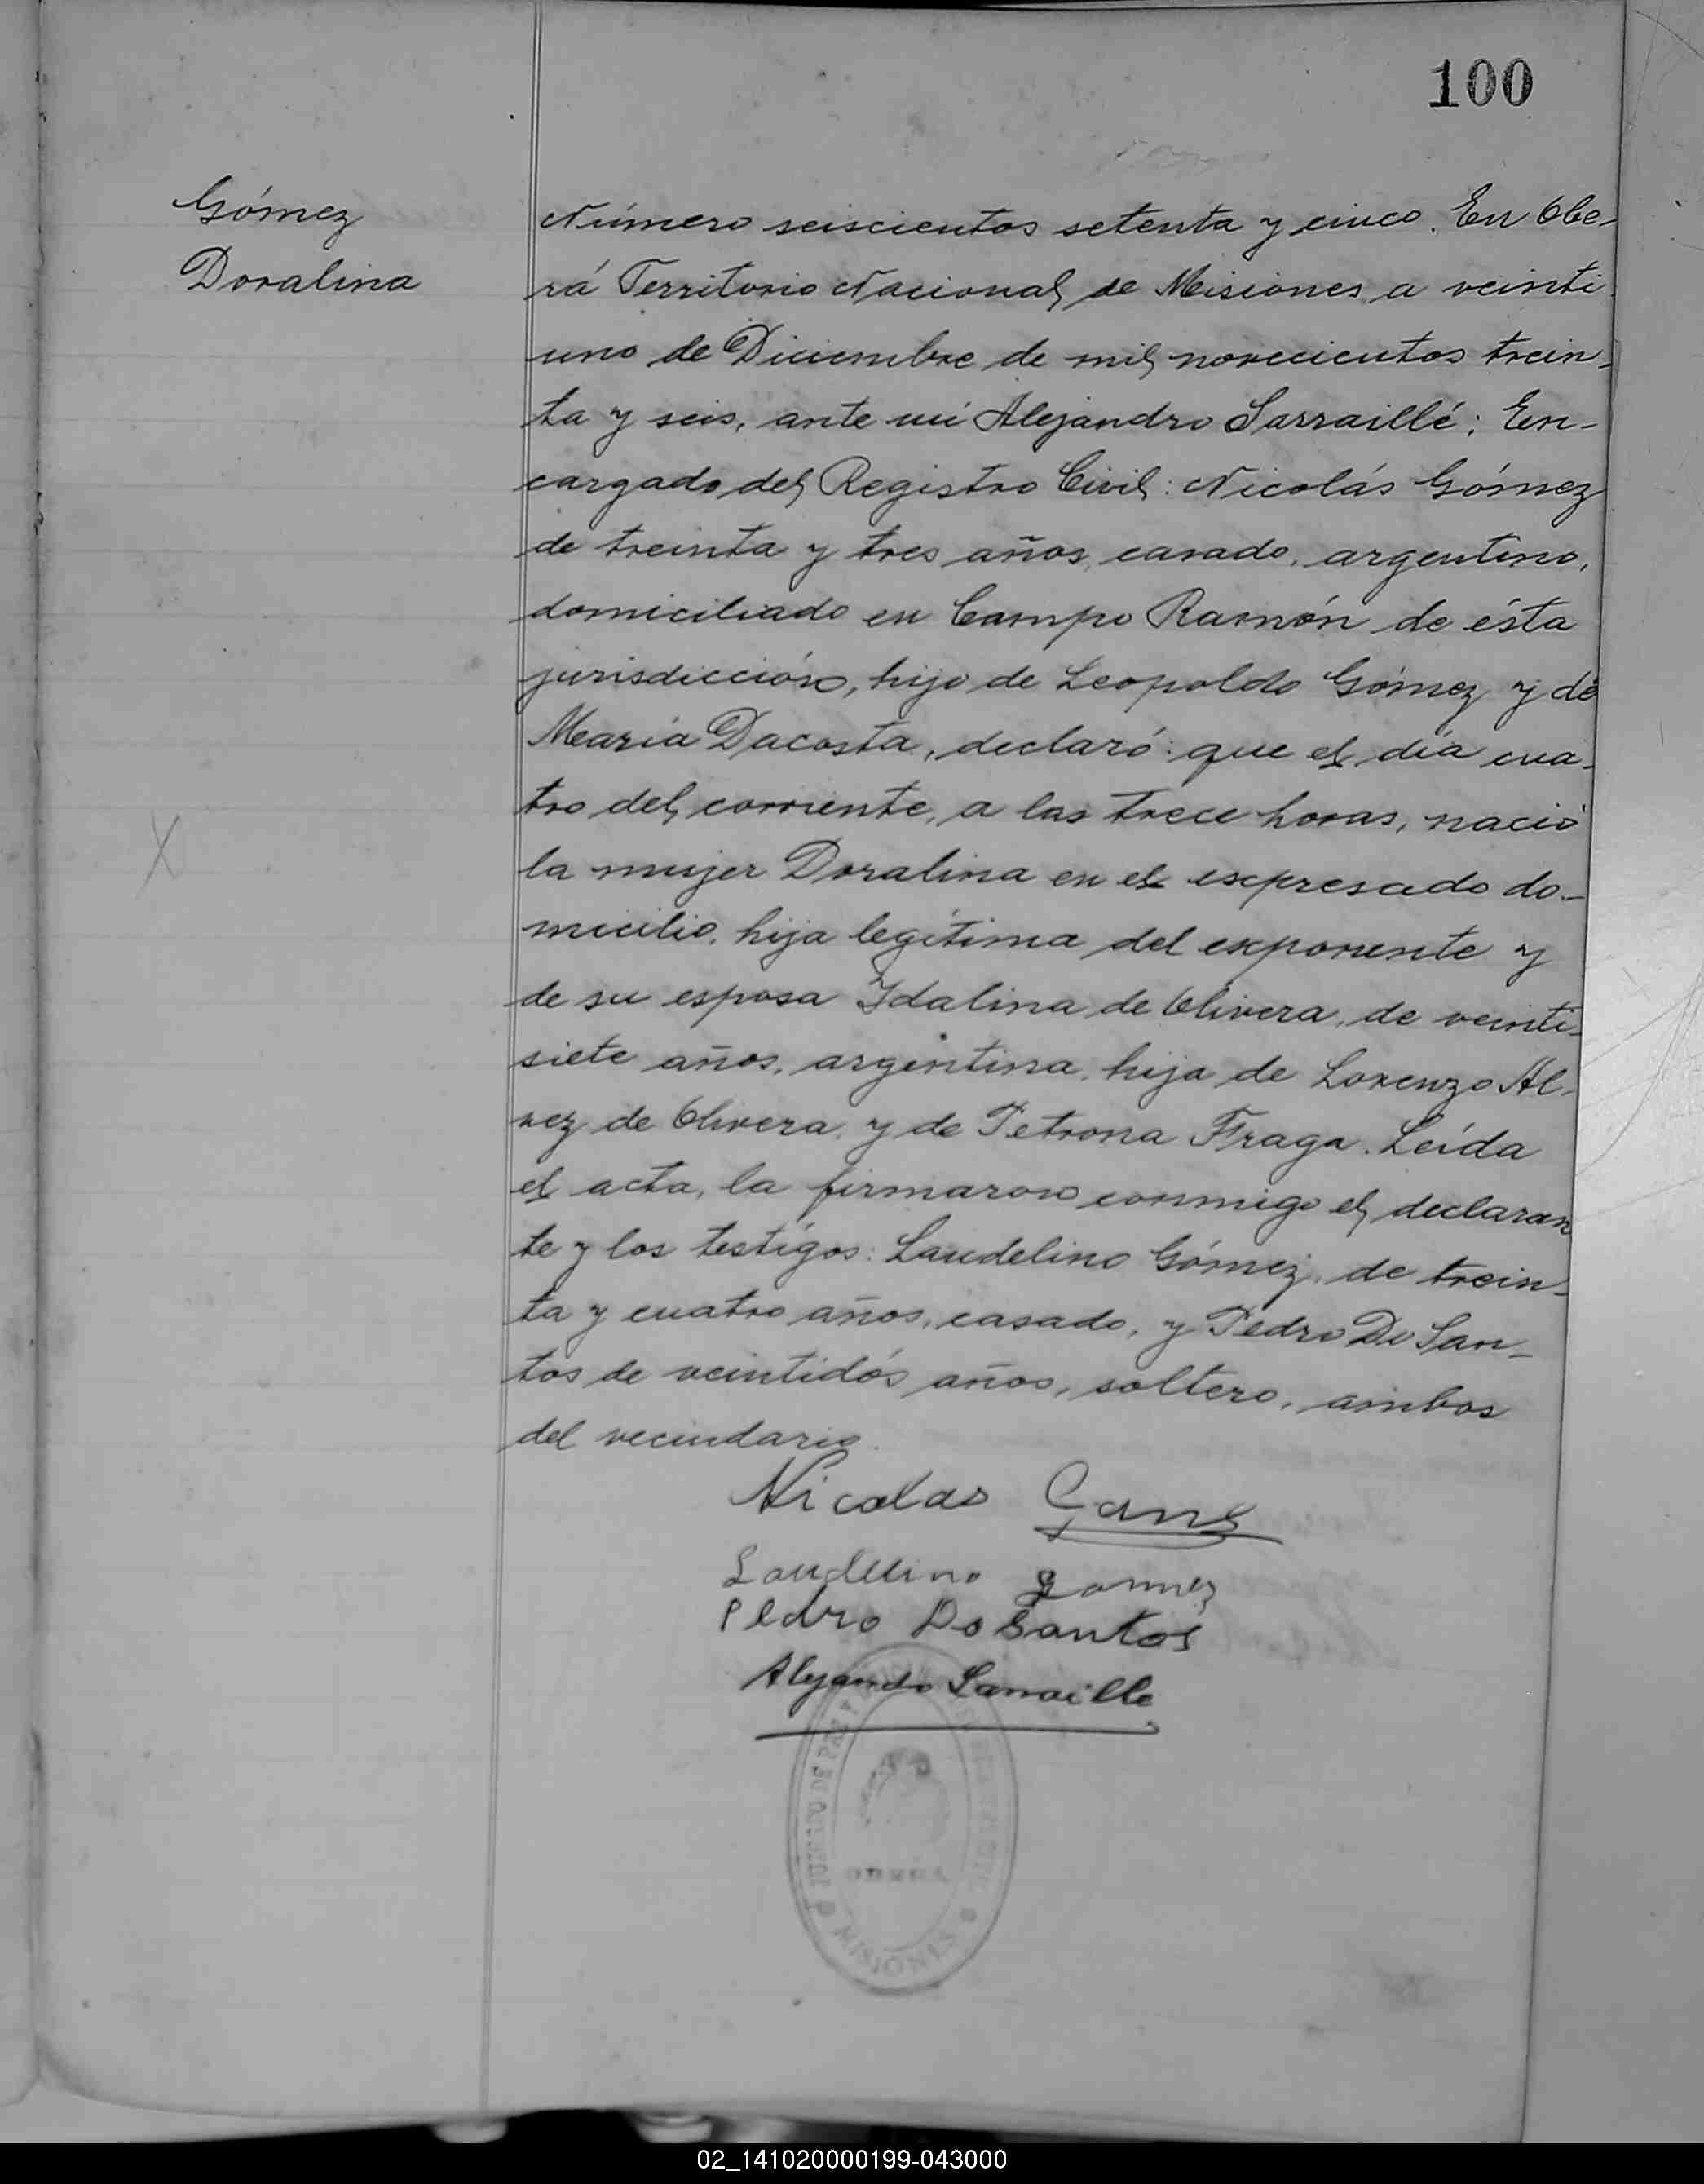 100
Gómez
Doralina
Número seiscientos setenta y cinco. En Obe-
rá Territorio Nacional de Misiones a veinti
uno de Diciembre de mil novecientos trein-
ta y seis, ante mi Alejandro Sarraillé; En-
cargado del Registro Civil: Nicolás Gómez
de treinta y tres años, casado, argentino,
domiciliado en Campo Ramón de ésta
jurisdicción, hijo de Leopoldo Gómez y de
María Dacosta, declaró: que el día cua-
tro del corriente, a las trece horas, nació
la mujer Doralina en el expresado do-
micilio, hija legítima del exponente y
de su esposa Idalina de Olivera, de veinti-
siete años, argentina, hija de Lorenzo Al-
vez de Olivera, y de Petrona Fraga. Leída
el acta, la firmaron conmigo el declaran
te y los testigos: Laudelino Gómez, de trein-
ta y cuatro años, casado, y Pedro Do San-
tos de veintidós años, soltero, ambos
del vecindario.
Nicolas
Laudelino gomez
Pedro Do Santos
Alejandro Sarraille
MISIONES
02_141020000199-043000